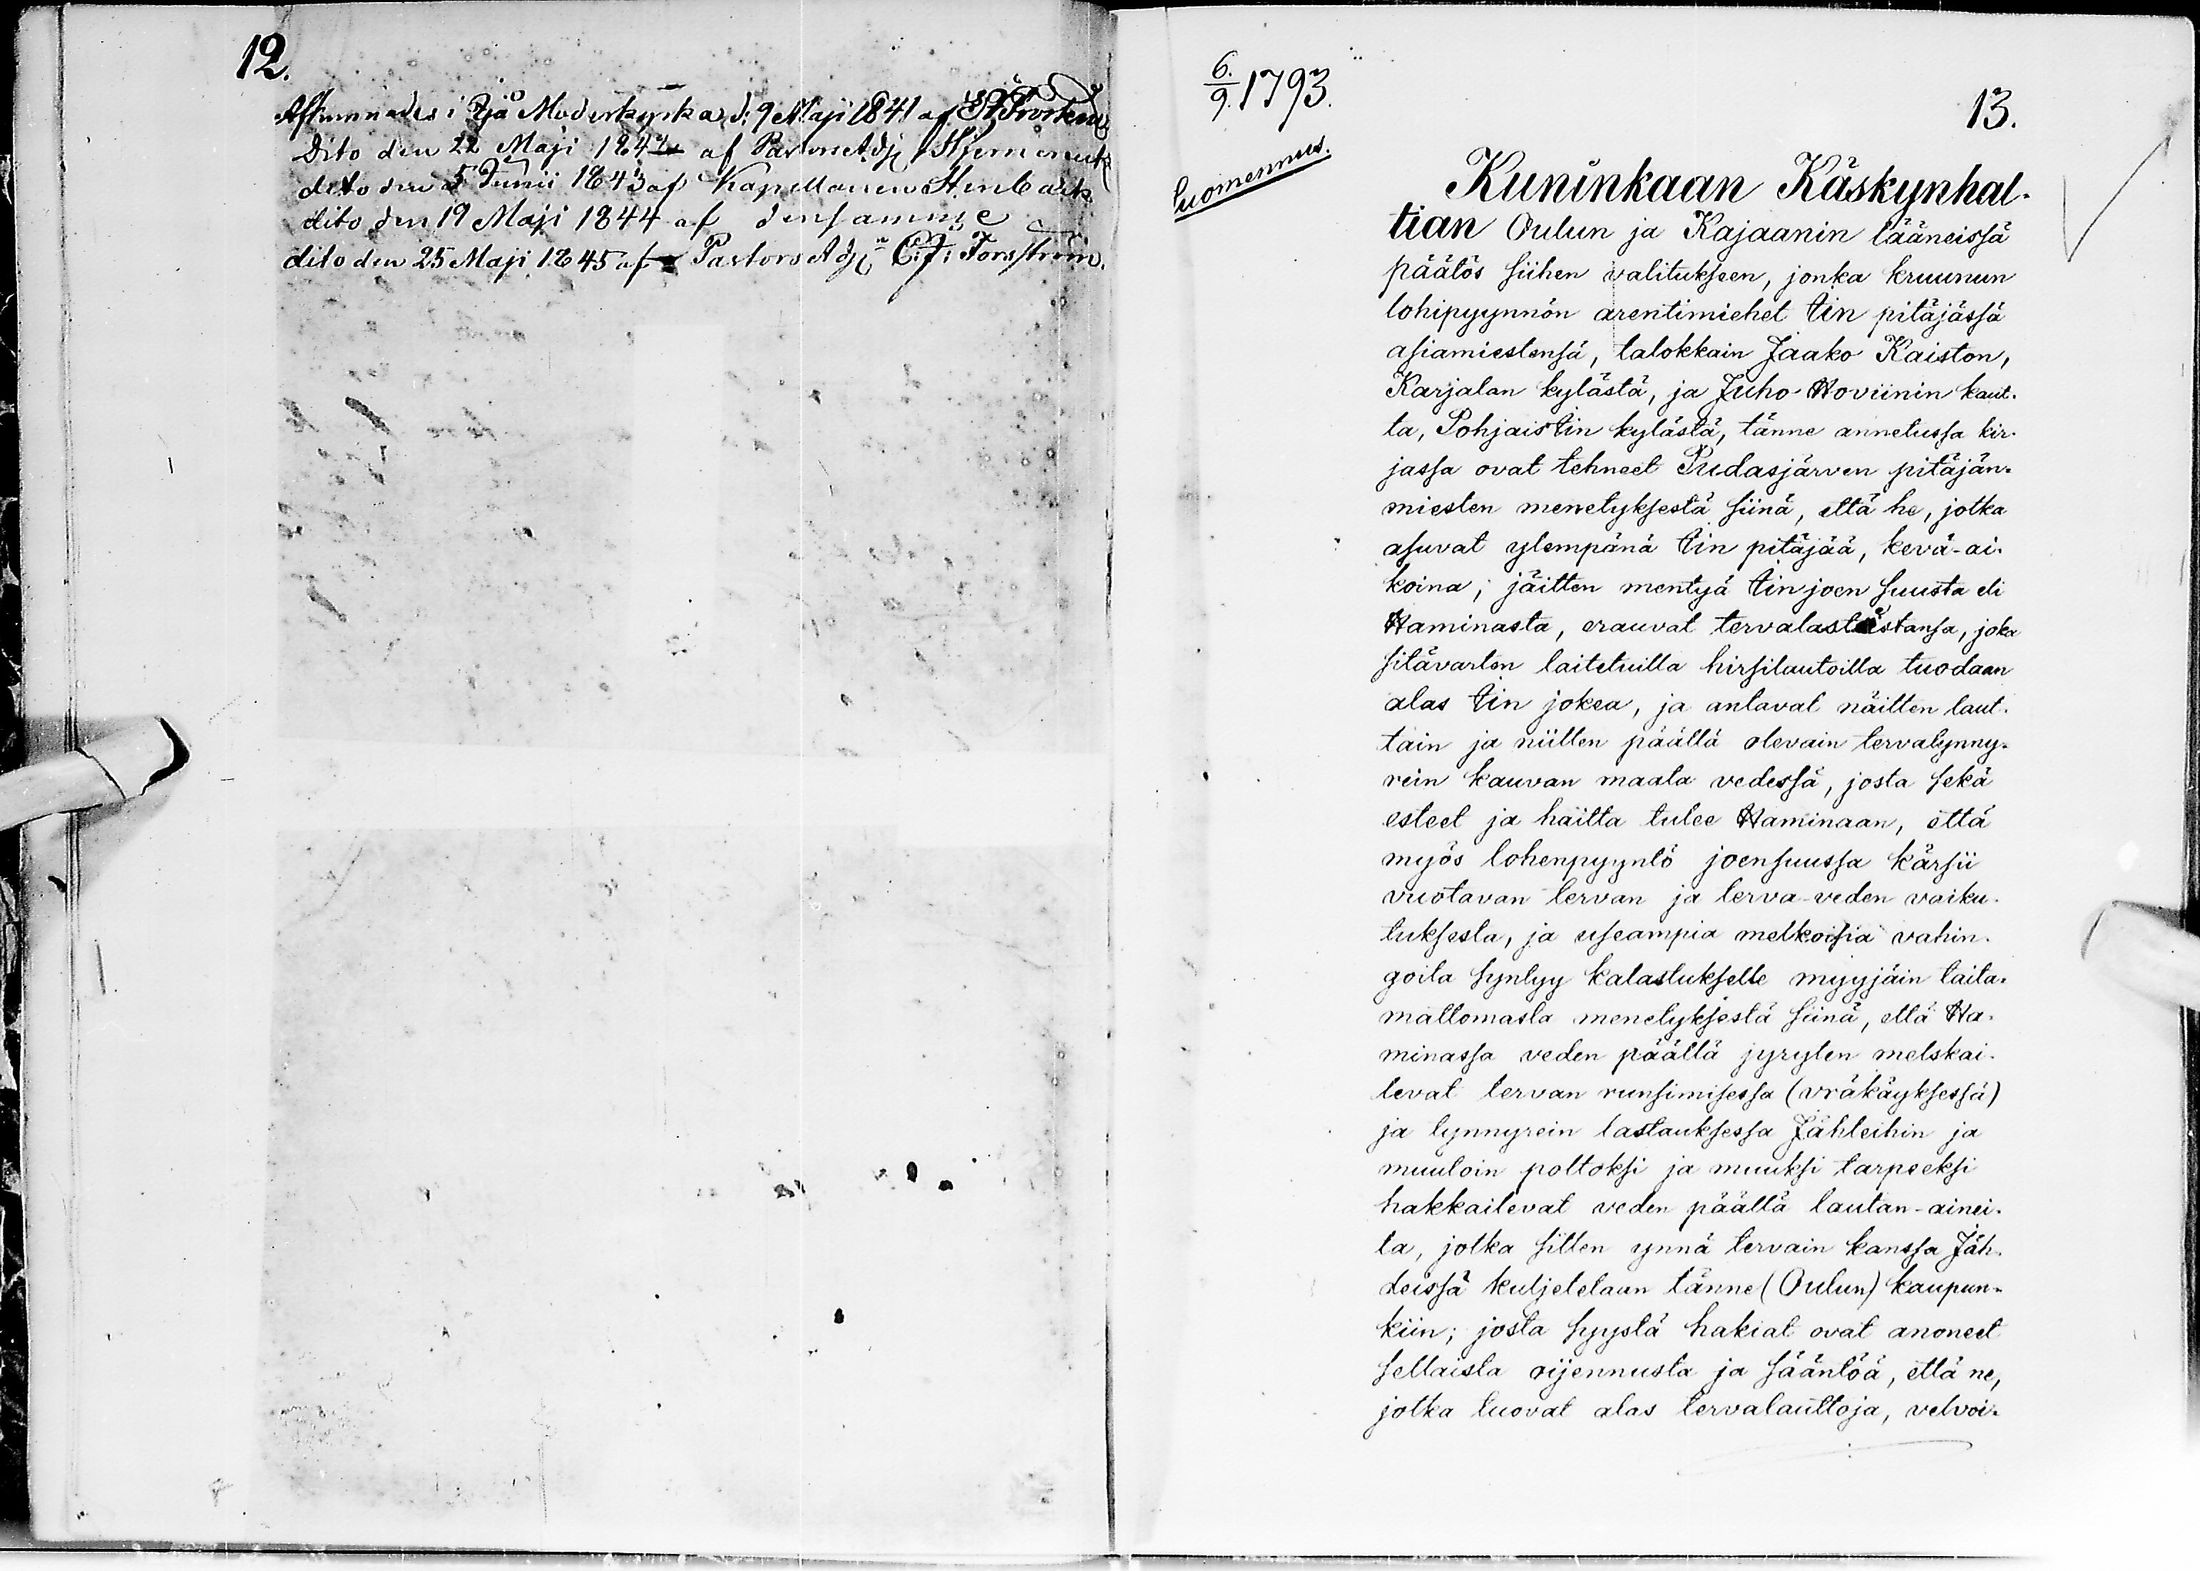 12.
Afkunnades i Ijå Moderkyrka d: 9 Maji 1841 af
Dito den 22 Maji 184 af Pastors Adj
dito den 5 Junii 1843 af Kapellanen Stenbäck
dito den 19 Maji 1844 af densamme
dito den 25 Maji 1845 af Pastors Adj: C. J: Forsström.
6./9. 1793.
Suomennus.
13.
Kuninkaan Käskynhal-
tian Oulun ja Kajaanin lääneissä
päätös siihen valitukseen, jonka kruunun
lohipyynnön arentimiehet Iin pitäjässä
asiamiestensä, talokkain Jaako Kaiston,
Karjalan kylästä, ja Juho Hoviinin kaut-
ta, Pohjais Iin kylästä, tänne annetussa kir-
jassa ovat tehneet Pudasjärven pitäjän-
miesten menetyksestä siinä, että he, jotka
asuvat ylempänä Iin pitäjää, kevä-ai-
koina, jäitten mentyä Iin joen suusta eli
Haminasta, erauvat tervalastistansa, joka
sitävarten laitetuilla hirsilautoilla tuodaan
alas Iin jokea, ja antavat näitten laut-
tain ja niitten päällä olevain tervatynny-
rein kauvan maata vedessä, josta sekä
esteet ja haitta tulee Haminaan, että
myös lohenpyyntö joensuussa kärsii
vuotavan tervan ja terva-veden vaiku-
tuksesta, ja useampia melkoisia vahin-
goita syntyy kalastukselle myyjäin taita-
mattomasta menetyksestä siinä, että Ha-
minassa veden päällä jyryten melskai-
levat tervan runsimisessa (vräkäyksessä)
ja tynnyrein lastauksessa Jähteihin ja
muutoin poltoksi ja muuksi tarpeeksi
hakkailevat veden päällä lautan-ainei-
ta, jotka sitten ynnä tervain kanssa Jäh-
deissä kuljetetaan tänne (Oulun) kaupun-
kiin; josta syystä hakiat ovat anoneet
sellaista oijennusta ja sääntöä, että ne,
jotka tuovat alas tervalauttoja, velvoi-